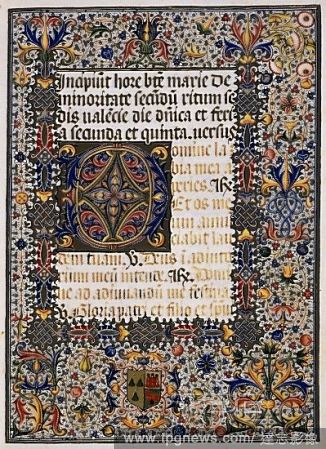 Incipiũt hore bt̃e marie de
minoritate secũdũ ritum se
dis ualẽcie die dñica et feria
a secunda et quinta. uersus
Domine la
bia mea a
peries. R̃
Et os me
um annũ
ciabit lau
dem tuam. V. Deus i adiuto
rium meũ intende. R̃. Domi
ne ad adiuuandũ me festina
V. Gloria patri et filio et spũi
www.tpgnews.com/ 達志影像